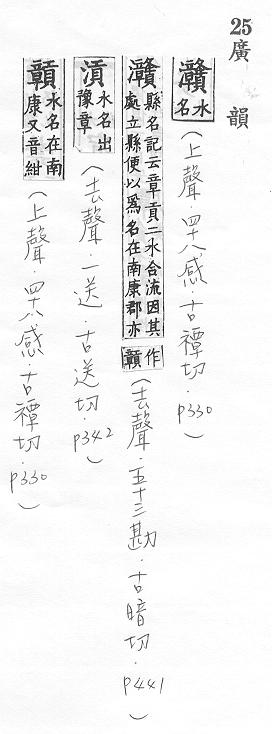 25廣韻
灨水名(上聲.四十八感.古禫切.p330)
灨縣名記云章貢二水合流因其處立縣便以爲名在南康郡亦作贑(去聲.五十三勘.古暗切.p441)
涢水名出豫章(去聲.一送.古送切.p342)
贑水名在南康又音紺(上聲.四十八感.古禫切.p330)